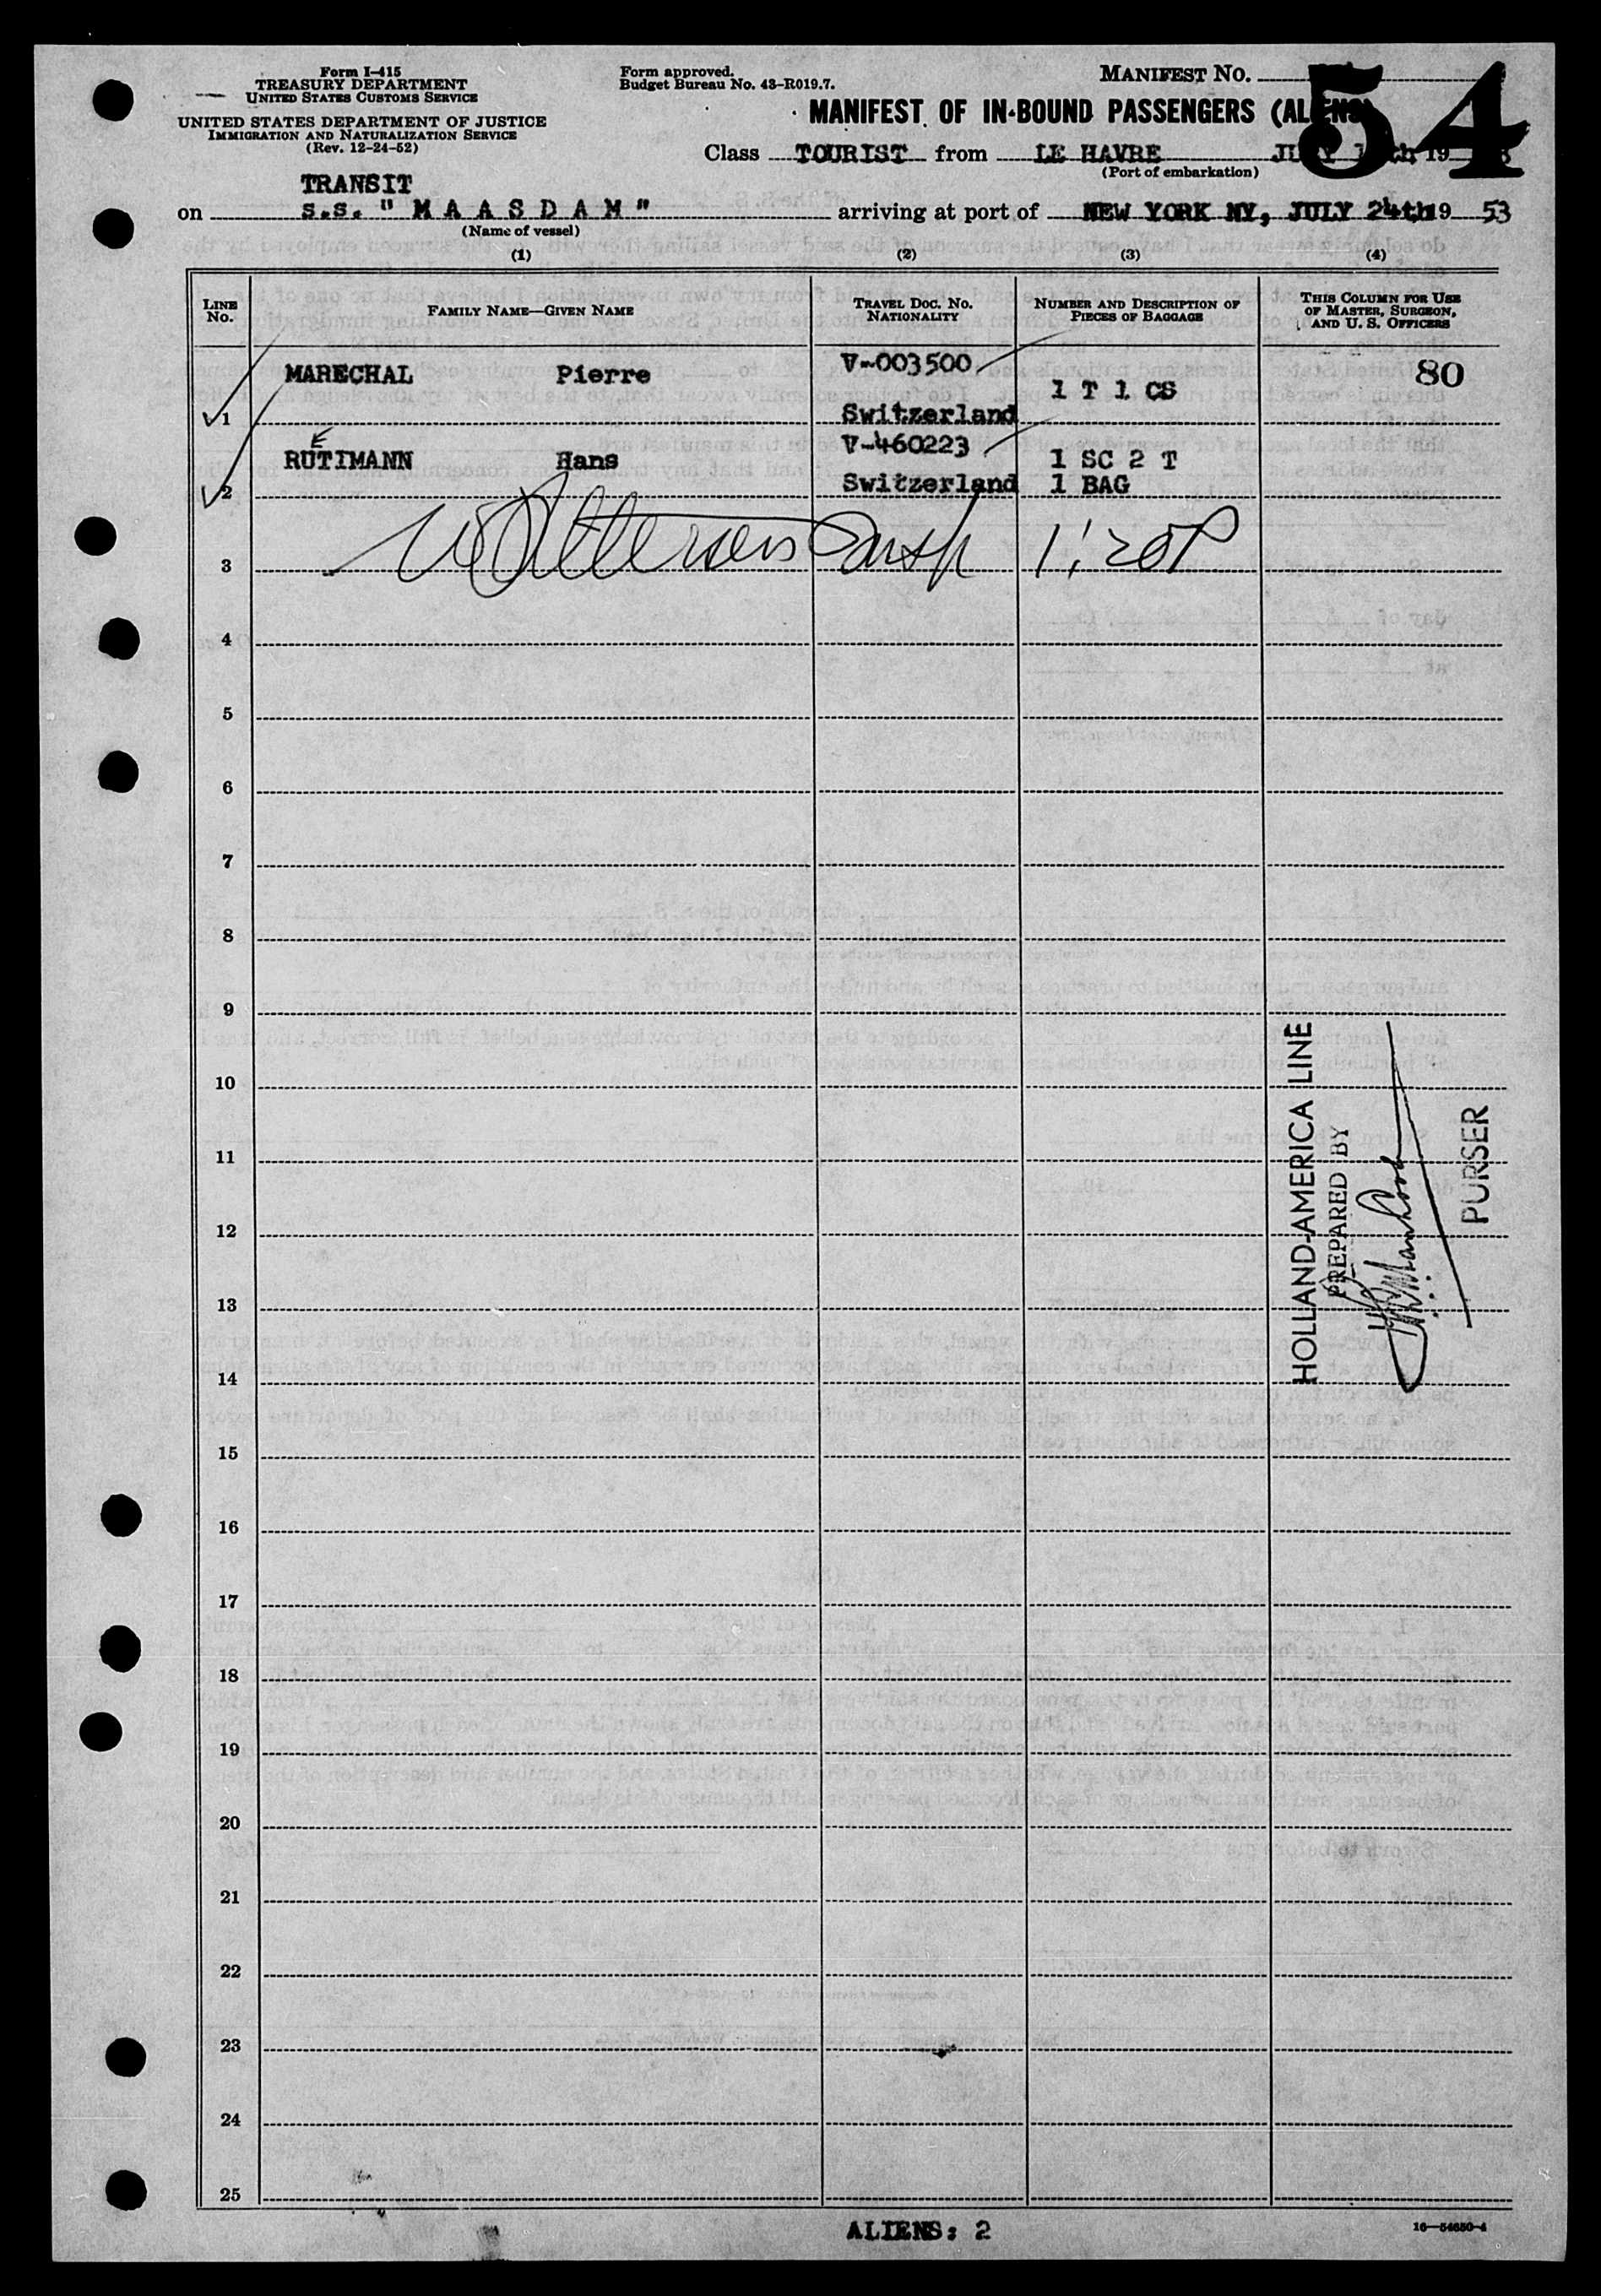 Form I-415
TREASURY DEPARTMENT
UNITED STATES CUSTOMS SERVICE
UNITED STATES DEPARTMENT OF JUSTICE
IMMIGRATION AND NATURALIZATION SERVICE
(Rev. 12-24-52)
Form approved.
Budget Bureau No. 43-R019.7.
MANIFEST NO. 54
MANIFEST OF IN-BOUND PASSENGERS (ALIENS)
Class TOURIST from LE HAVRE JULY 19
(Port of embarkation)
TRANSIT
on s.s. "MAASDAM" arriving at port of NEW YORK NY, JULY 24th 19 53
(Name of vessel)
(1) (2) (3) (4)
LINE NO. FAMILY NAME—GIVEN NAME TRAVEL DOC. NO. NATIONALITY NUMBER AND DESCRIPTION OF PIECES OF BAGGAGE THIS COLUMN FOR USE OF MASTER, SURGEON, AND U. S. OFFICERS
1 MARECHAL Pierre V-003500 Switzerland 1 T 1 CS 80
E
2 RUTIMANN Hans V-460223 Switzerland 1 SC 2 T 1 BAG
3 Insp 1:20P
4
5
6
7
8
9
10
11
12
13
14
15
16
17
18
19
20
21
22
23
24
25
HOLLAND-AMERICA LINE
PREPARED BY
PURSER
ALIENS: 2
16—54650-4